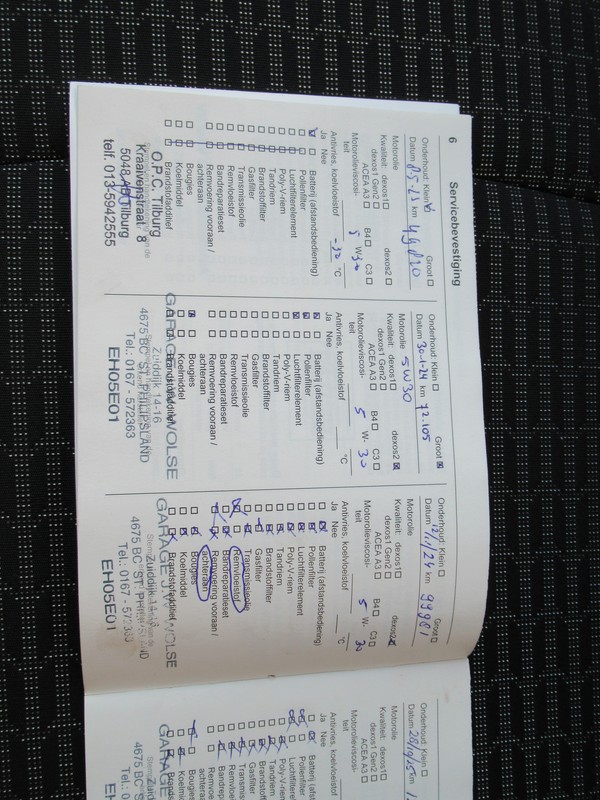 6
Servicebevestiging
Onderhoud: Klein Groot
Datum km
Motorolie
Kwaliteit: dexos1 dexos2
dexos1 Gen2
ACEA A3 B4 C3
Motorolieviscosi- 5 W- 30
teit
Antivries, koelvloeistof -30 °C
Ja Nee
Batterij (afstandsbediening)
Pollenfilter
Luchtfilterelement
Poly-V-riem
Tandriem
Brandstoffilter
Gasfilter
Transmissieolie
Remvloeistof
Bandreparatieset
Remvoering vooraan /
achteraan
Bougies
Koelmiddel
Brandstofadditief
O.P.C. Tilburg
Kraaivenstraat 8
5048 AB Tilburg
telf. 013-5942555
Onderhoud: Klein Groot
Datum 30-1-24 km 72.105
Motorolie 5W30
Kwaliteit: dexos1 dexos2
dexos1 Gen2
ACEA A3 B4 C3
Motorolieviscosi- 5 W- 30
teit
Antivries, koelvloeistof °C
Ja Nee
Batterij (afstandsbediening)
Pollenfilter
Luchtfilterelement
Poly-V-riem
Tandriem
Brandstoffilter
Gasfilter
Transmissieolie
Remvloeistof
Bandreparatieset
Remvoering vooraan /
achteraan
Bougies
Koelmiddel
GARAGE WOLSE
Zuiddijk 14-16
4675 BC ST. PHILIPSLAND
Tel.: 0167 - 572363
EH05E01
Onderhoud: Klein Groot
Datum km 99981
Motorolie
Kwaliteit: dexos1 dexos2
dexos1 Gen2
ACEA A3 B4 C3
Motorolieviscosi- 5 W- 30
teit
Antivries, koelvloeistof °C
Ja Nee
Batterij (afstandsbediening)
Pollenfilter
Luchtfilterelement
Poly-V-riem
Tandriem
Brandstoffilter
Gasfilter
Transmissieolie
Remvloeistof
Bandreparatieset
Remvoering vooraan /
achteraan
Bougies
Koelmiddel
Brandstofadditief
GARAGE J.W. WOLSE
Zuiddijk 14-16
4675 BC ST. PHILIPSLAND
Tel.: 0167 - 572363
EH05E01
Onderhoud: Klein
Datum
Motorolie
Kwaliteit: dexos1
dexos1 Gen2
ACEA A3
Motorolieviscosi-
teit
Antivries, koelvloeistof
Ja Nee
Batterij (afs
Pollenfilter
Luchtfilterel
Poly-V-riem
Tandriem
Brandstoffi
Gasfilter
Transmis
Remvloei
Bandrepa
Remvoer
achteraa
Bougies
Koelmid
GARAG
Zuiddi
4675 BC S
Tel.: 0
EH05